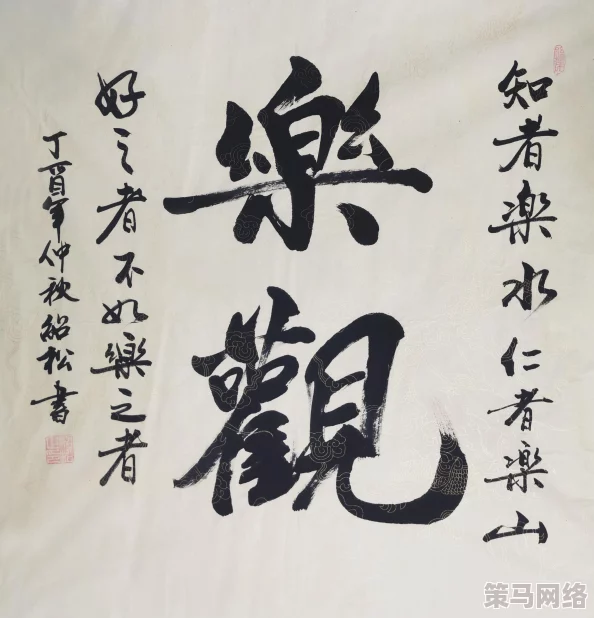 知者楽水仁者楽山
樂觀
好之者不如樂之者
丁酉年仲秋紹松書
策马网络